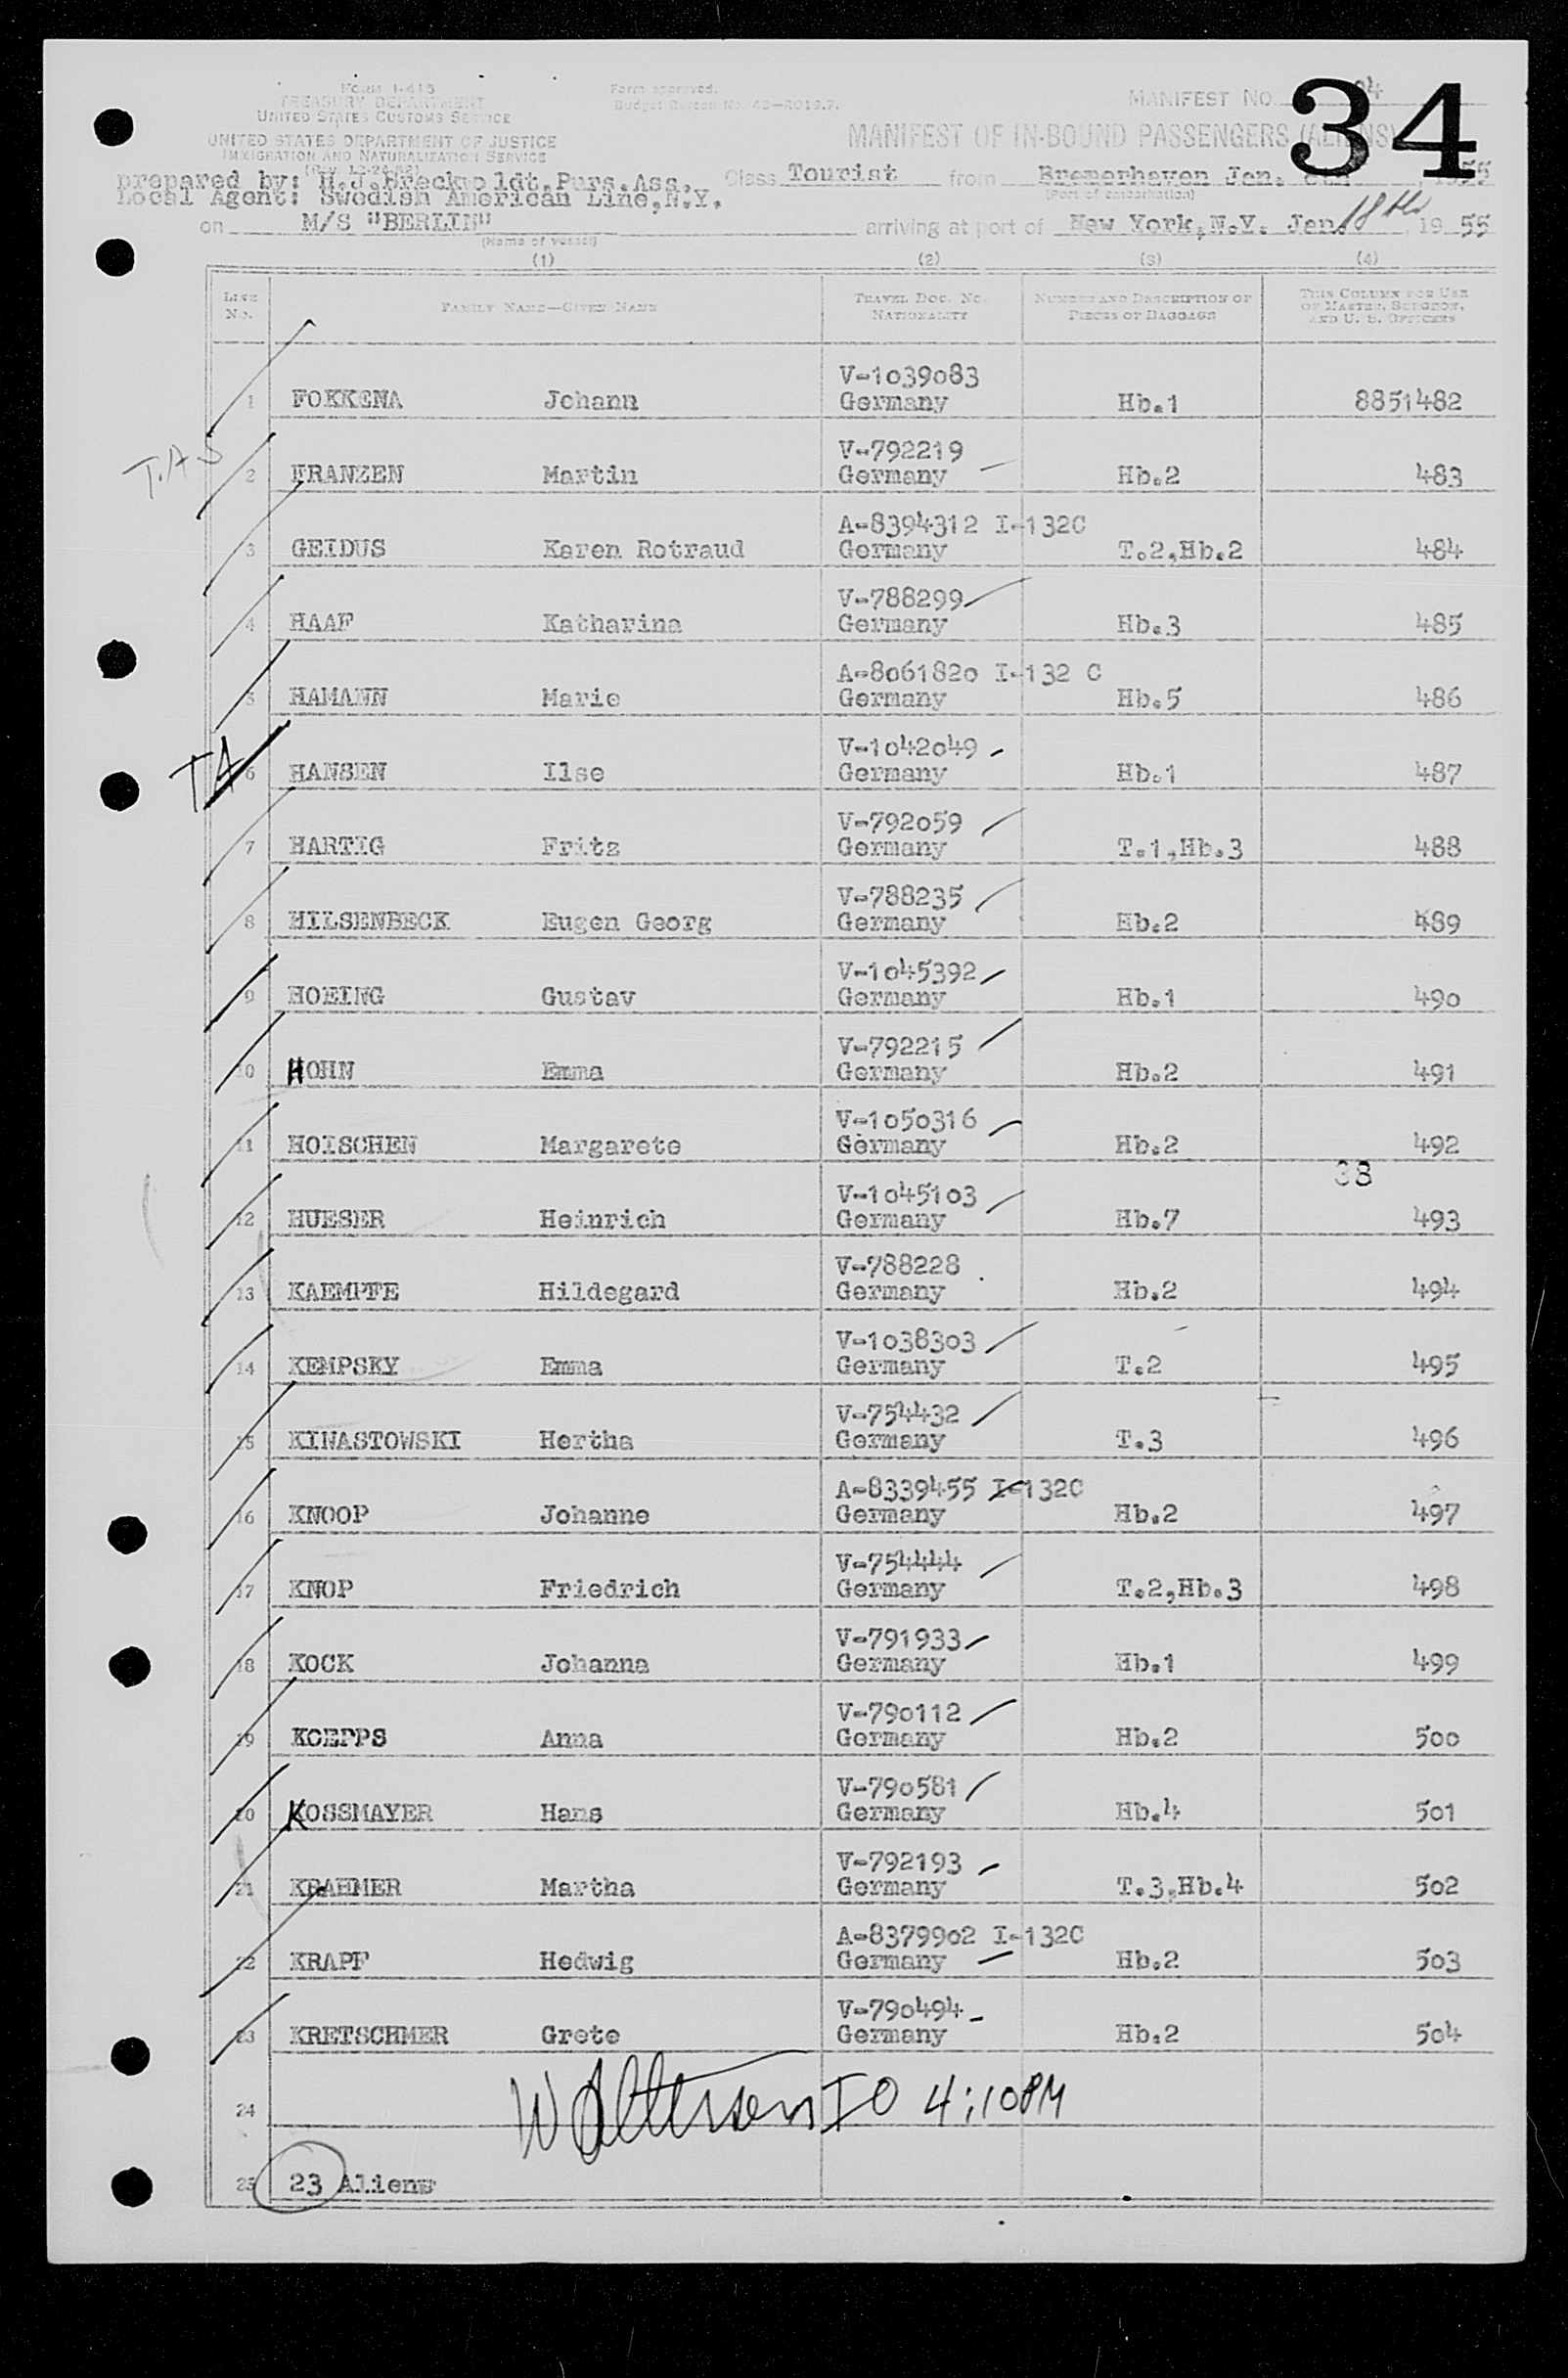 34
Form I-418
TREASURY DEPARTMENT
UNITED STATES CUSTOMS SERVICE
UNITED STATES DEPARTMENT OF JUSTICE
IMMIGRATION AND NATURALIZATION SERVICE
Form approved.
Budget Bureau No. 43-R019.7.
MANIFEST NO. 34
MANIFEST OF IN-BOUND PASSENGERS (ALIENS)
prepared by: H.J.Breckwoldt,Purs.Ass. Class Tourist from Bremerhaven Jan. 1955
Local Agent: Swedish American Line,N.Y. (Port of embarkation)
on M/S "BERLIN" arriving at port of New York,N.Y. Jan. 18th, 1955
(Name of vessel)
(1) (2) (3) (4)
LINE No. FAMILY NAME—GIVEN NAME TRAVEL DOC. NO. NATIONALITY NUMBER AND DESCRIPTION OF PIECES OF BAGGAGE THIS COLUMN FOR USE OF MASTER, SURGEON, AND U. S. OFFICERS
V-1039083
1 FOKKENA Johann Germany Hb.1 8851482
V-792219
T.A.S 2 FRANZEN Martin Germany Hb.2 483
A-8394312 I-132C
3 GEIDUS Karen Rotraud Germany T.2,Hb.2 484
V-788299
4 HAAF Katharina Germany Hb.3 485
A-8061820 I-132 C
5 HAMANN Marie Germany Hb.5 486
V-1042049
TA 6 HANSEN Ilse Germany Hb.1 487
V-792059
7 HARTIG Fritz Germany T.1,Hb.3 488
V-788235
8 HILSENBECK Eugen Georg Germany Hb.2 489
V-1045392
9 HOEING Gustav Germany Hb.1 490
V-792215
10 HOHN Emma Germany Hb.2 491
V-1050316
11 HOISCHEN Margarete Germany Hb.2 492
38
V-1045103
12 HUESER Heinrich Germany Hb.7 493
V-788228
13 KAEMPFE Hildegard Germany Hb.2 494
V-1038303
14 KEMPSKY Emma Germany T.2 495
V-754432
15 KINASTOWSKI Hertha Germany T.3 496
A-8339455 I-132C
16 KNOOP Johanne Germany Hb.2 497
V-754444
17 KNOP Friedrich Germany T.2,Hb.3 498
V-791933
18 KOCK Johanna Germany Hb.1 499
V-790112
19 KOEPPS Anna Germany Hb.2 500
V-790581
20 KOSSMAYER Hans Germany Hb.4 501
V-792193
21 KRAEMER Martha Germany T.3,Hb.4 502
A-8379902 I-132C
22 KRAPF Hedwig Germany Hb.2 503
V-790494
23 KRETSCHMER Grete Germany Hb.2 504
24 IO 4:10PM
25 23 Aliens